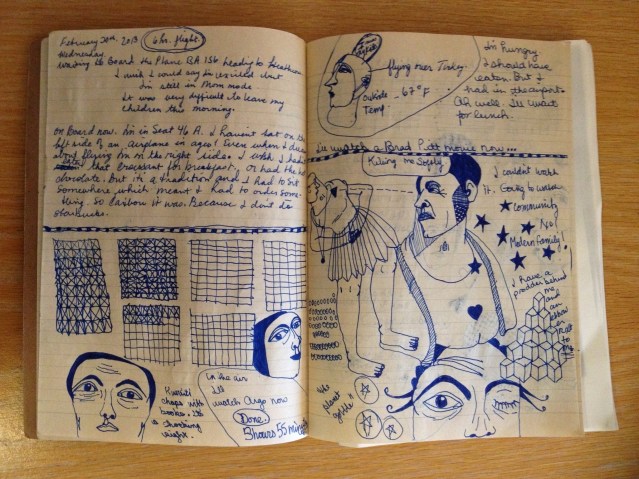 February 20th, 2013
Wednesday
6 hr. flight.
Waiting to Board the Plane BA 156 heading to Heathrow
I wish I could say I'm excited but
I'm still in Mom mode
It was very difficult to leave my
children this morning.
On Board now. I'm in Seat 46 A. I haven't sat on the
left side of an airplane in ages! Even when I dream
about flying I'm on the right side. I wish I hadn't
that croissant for breakfast, or had the hot
chocolate. But it's a tradition and I had to sit
somewhere which meant I had to order some-
thing. So Caribou it was. Because I don't do
Starbucks.
In the air
I'll
watch Argo now
Done.
5 hours 55 minutes
chaps with
books. It's
a shocking
sight.
flying over Turkey
outside
Temp
- 67°F
I'm hungry
I should have
eaten. But I
had in the airport
Ah well. I'll wait
for lunch.
I'll watch a Brad Pitt movie now...
Killing me Softly
I couldn't watch
it. Going to watch
community
No
Modern Family!
I have a
prodder behind
me
and
an
elbow
next
to
me
the
planet
goldie's